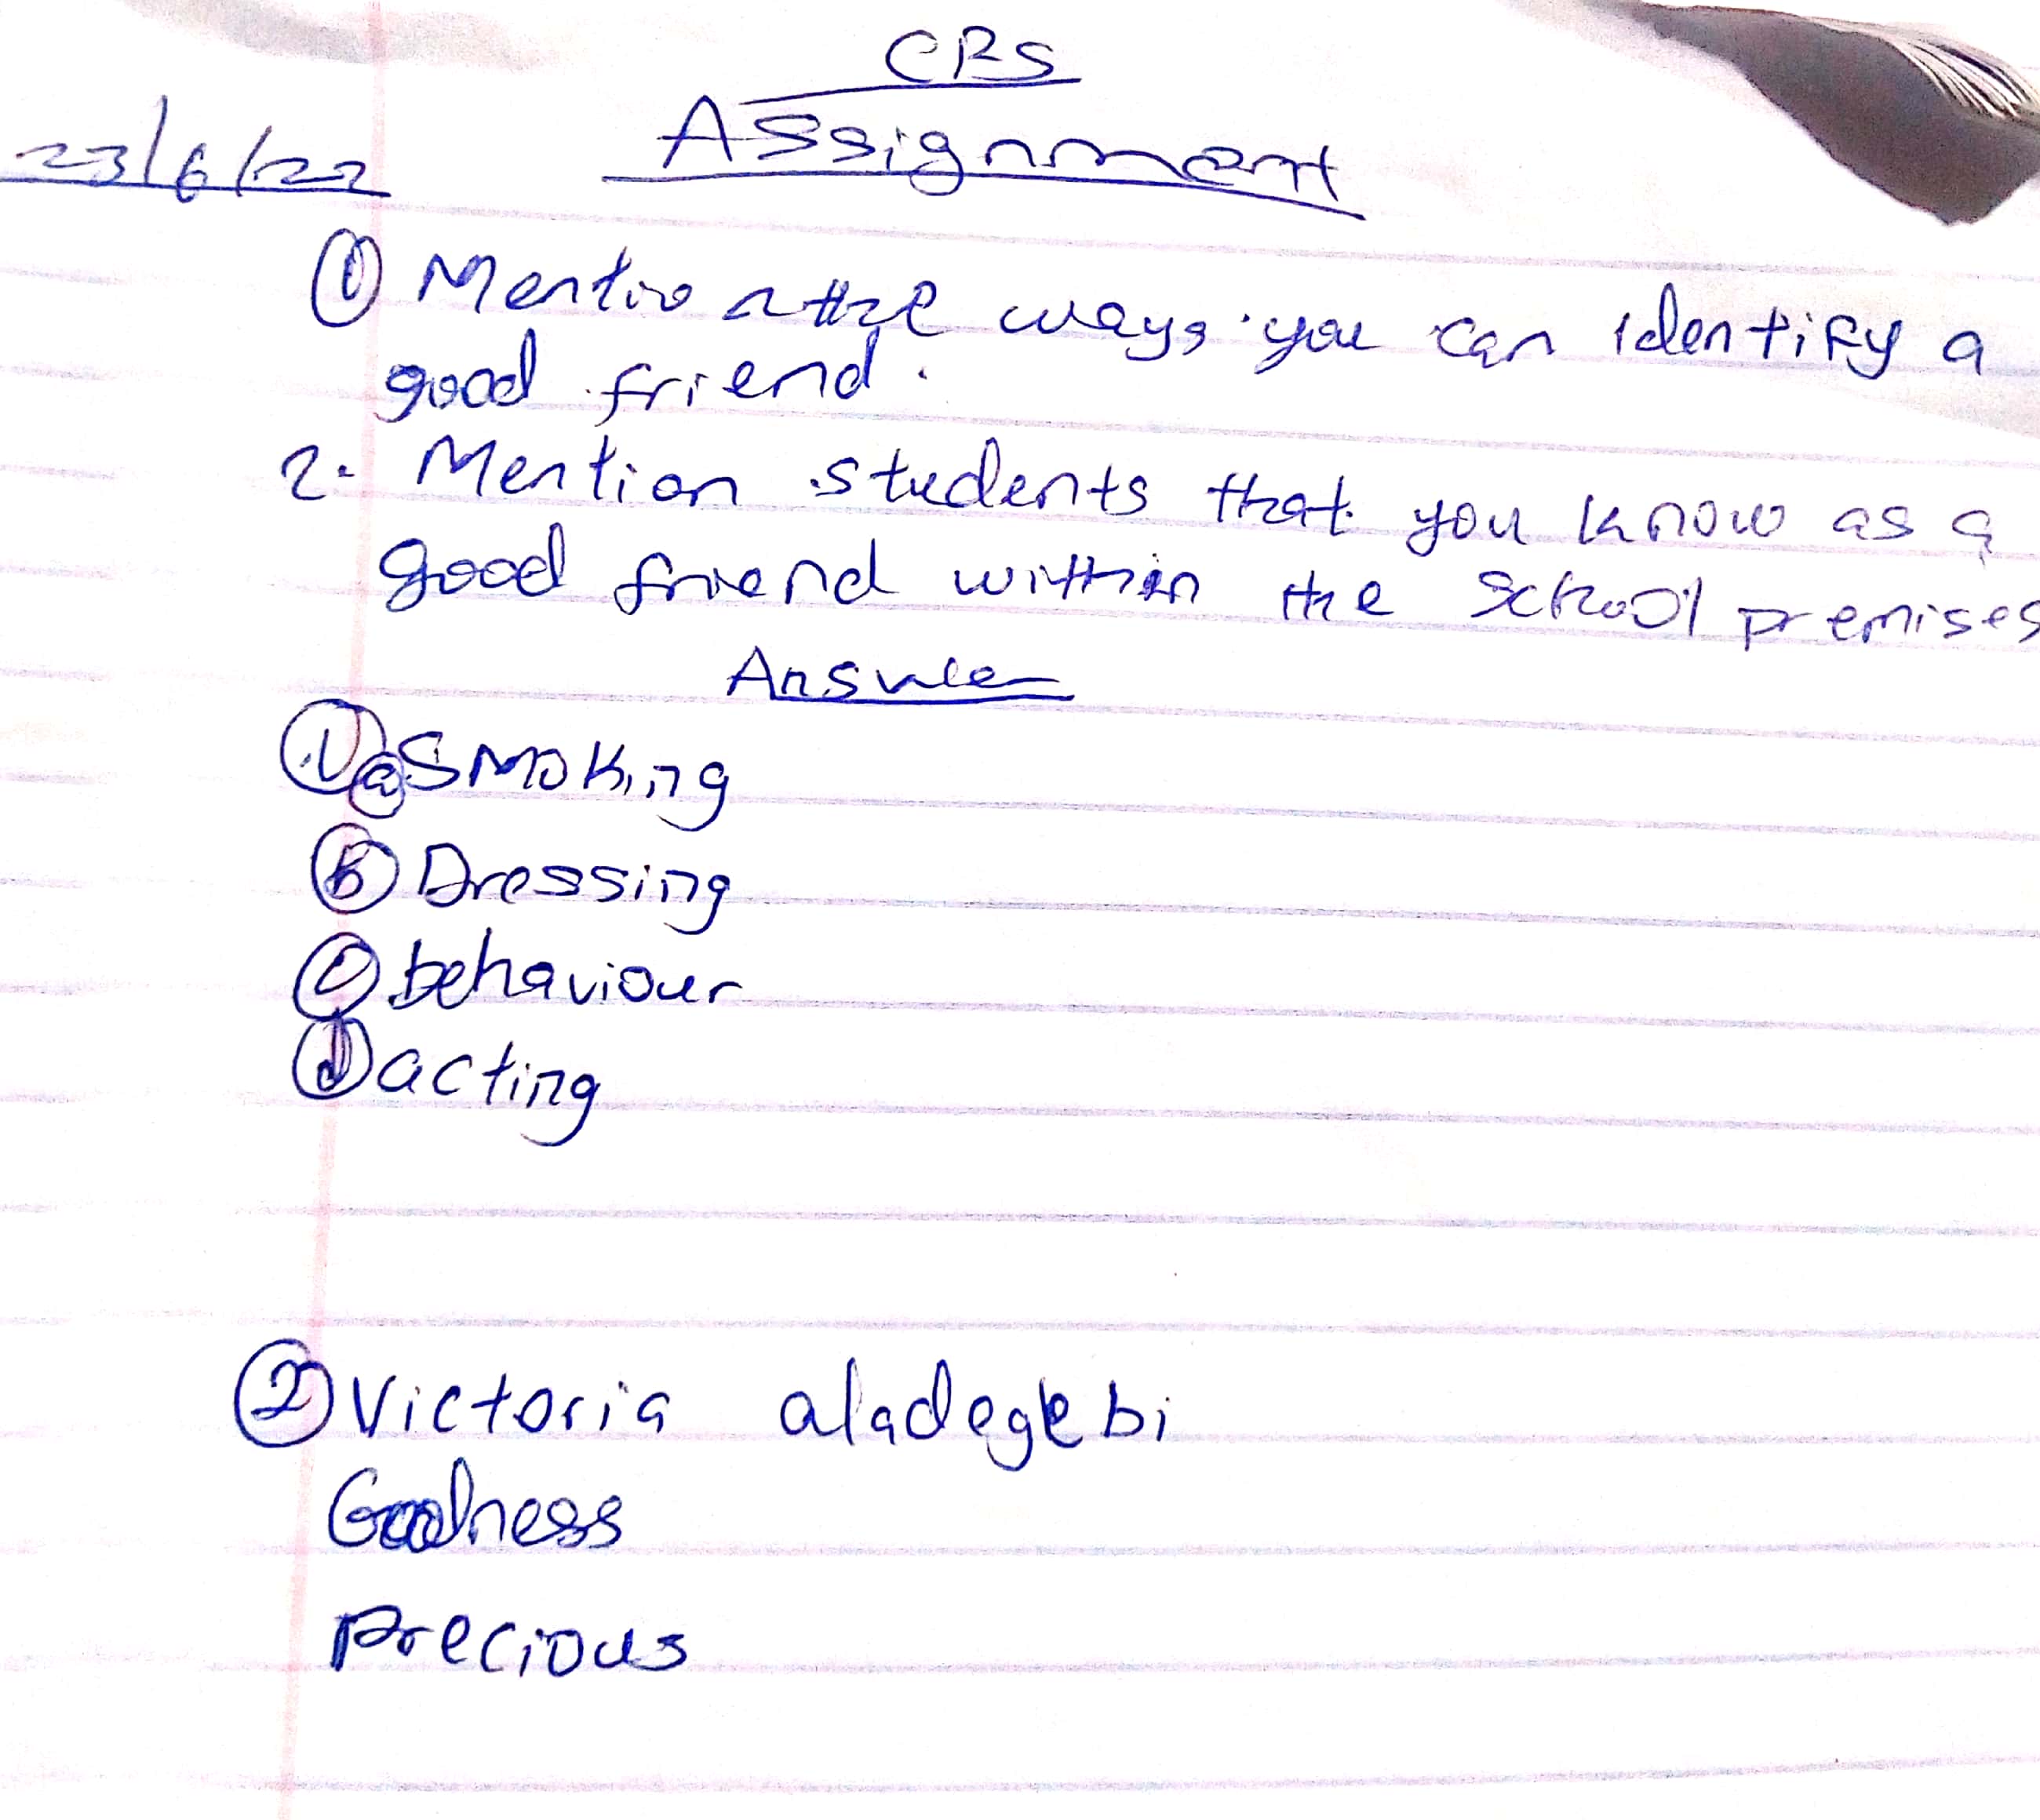 CRS
Assignment
23/6/22
① Mention the ways you can identify a
good friend.
2. Mention students that you know as a
good friend within the school premises
Answer
① ⓐ Smoking
ⓑ Dressing
ⓒ behaviour
ⓓ acting
② Victoria aladegebi
Goodness
precious